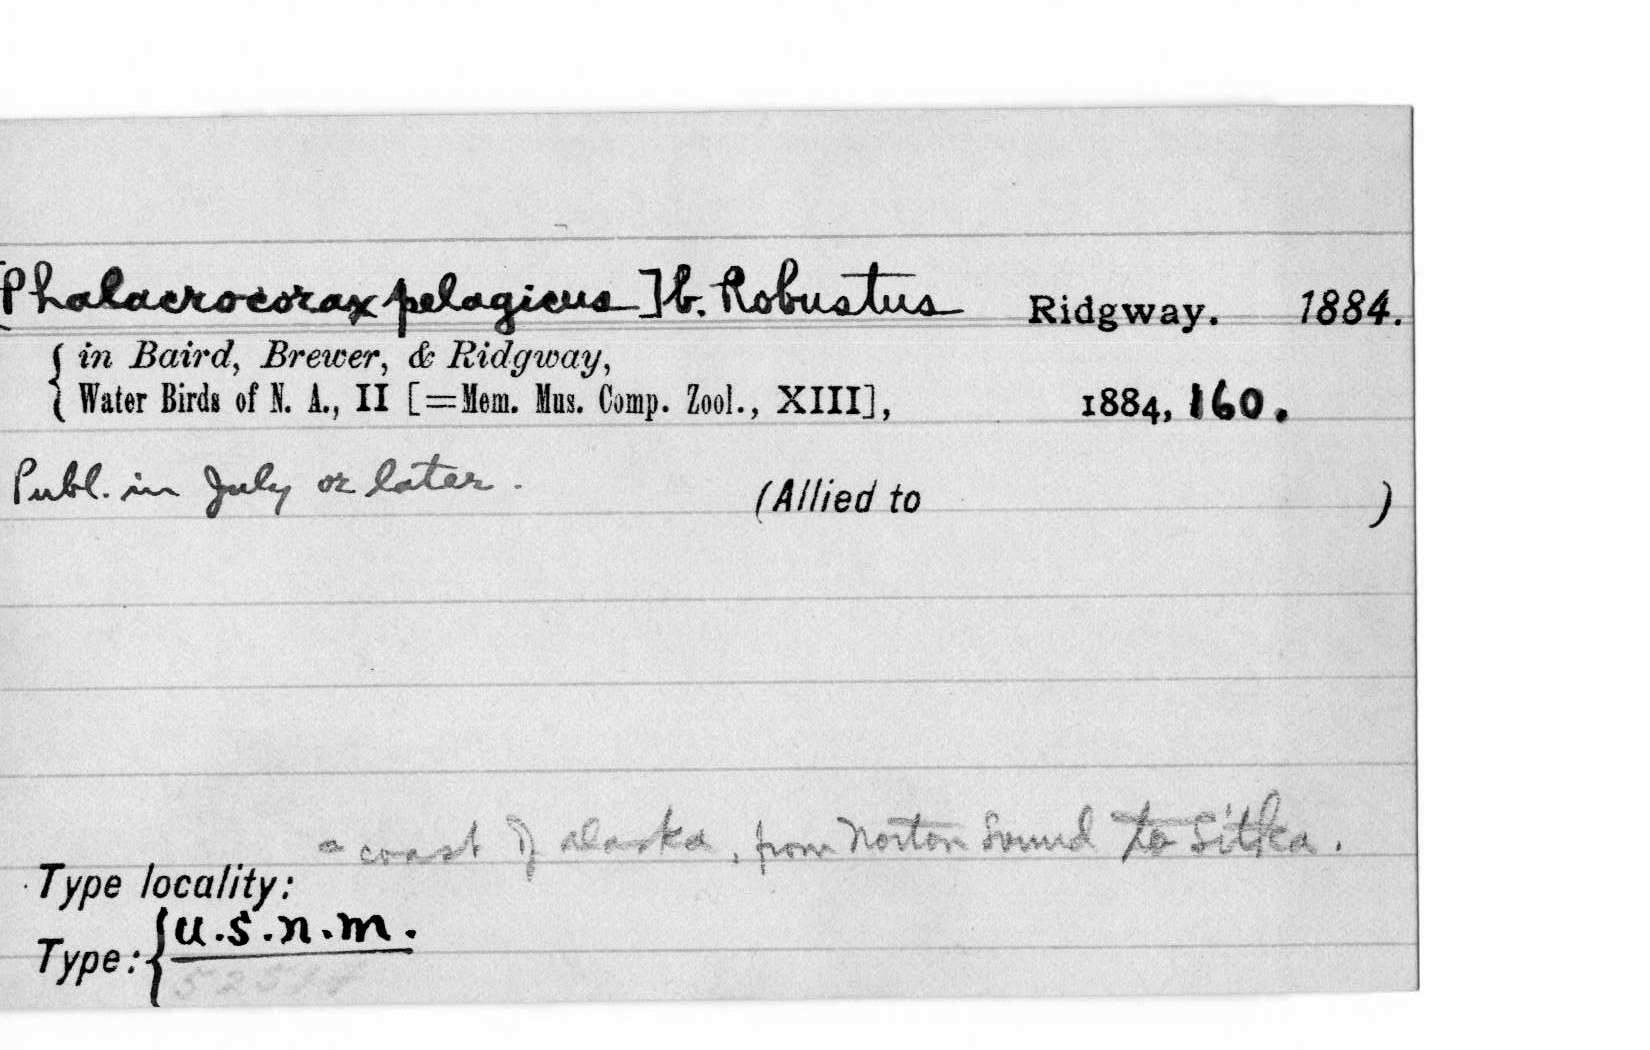 [Phalacrocorax pelagicus] b. Robustus Ridgway. 1884.
in Baird, Brewer, & Ridgway,
Water Birds of N. A., II [=Mem. Mus. Comp. Zool., XIII], 1884, 160.
Publ. in July or later. (Allied to )
= coast of Alaska, from Norton Sound to Sitka.
Type locality:
Type: { U.S.N.M.